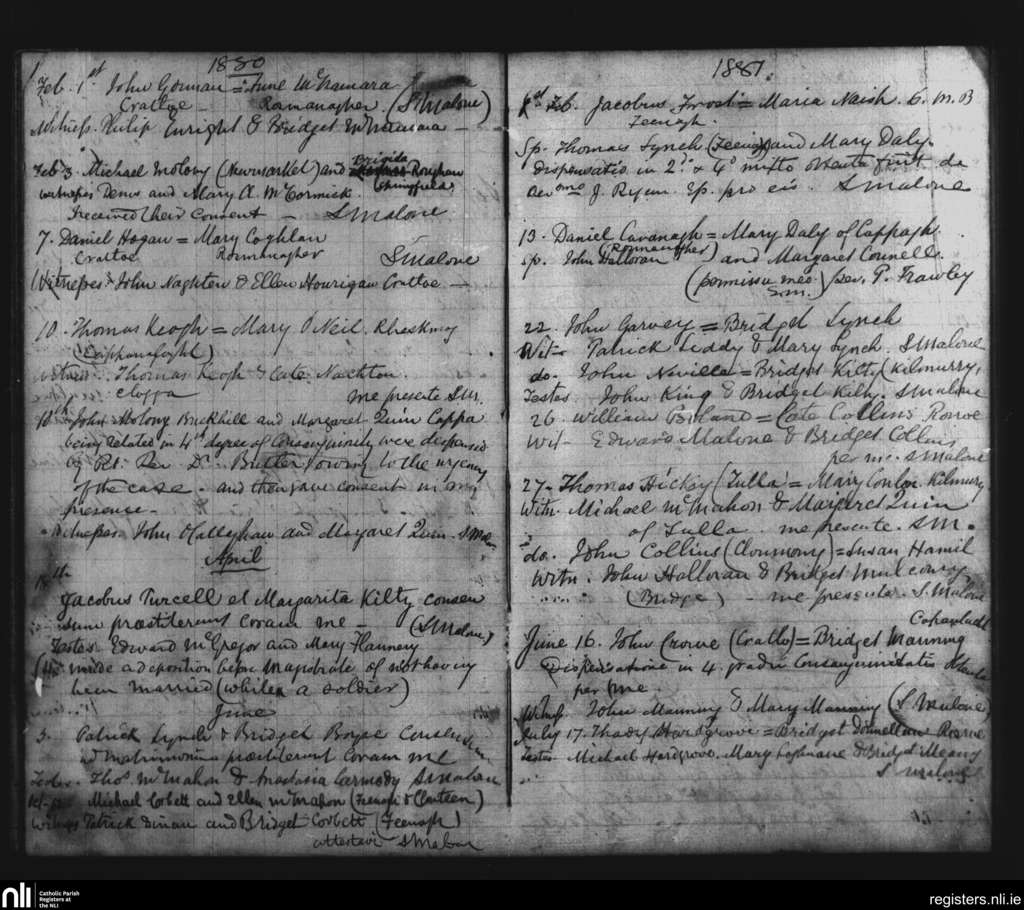 1880
Feb. 1st John Gorman = Jane McNamara
Crattoe - Rosmanagher. (S Malone)
Witness. Philip Enright & Bridget McNamara -
Feb 3. Michael Molony (Newmarket) and Brigida
witnesses Denis and Mary A. McCormick. (Springfield)
I received their consent - S Malone
7. Daniel Hogan = Mary Coghlan
Crattoe Rosmanagher S Malone
Witnesses. John Naghten & Ellen Hourigan Crattoe -
10. Thomas Keogh = Mary O'Neil,
witness Thomas Keogh & Cate Naghton
me presente S.M.
10th John Molony Buckhill and Margaret Quin Cappa
being related in 4th degree of Consanguinity were dispensed
by Rt. Rev Dr. Butler owing to the urgency
of the case - and then gave consent in my
presence -
Witnesses. John O'Callaghan and Margaret Quin. S Mal.
April
18th
Jacobus Purcell et Margarita Kilty consen
sum praestiterunt coram me - (S Malone)
Testes. Edward McGregor and Mary Flannery
(He made a deposition before Magistrate of not having
been married (while a soldier)
June
3. Patrick Lynch & Bridget Boyce Consensum
ad matrimonium praestiterunt Coram me
Testes. Thos McMahon & Anastasia Carmody S Malone
Michael Corbett and Ellen McMahon (Feenagh & Clonteen)
Witness Patrick Dinan and Bridget Corbett (Feenagh)
S Malone
1881.
1st Feb. Jacobus Frost = Maria Naish. 6. M.B
Feenagh.
Sp. Thomas Lynch (Feenagh) and Mary Daly.
dispensatio in 2do & 4o obtenta fuit de
J. Ryan Ep. pro eis. S Malone
13. Daniel Cavanagh = Mary Daly of Cappagh.
(Rosmanagher)
Sp. John Halloran and Margaret Connell.
(permissu meo S.M.) Rev. P. Frawley
22. John Garvey = Bridget Lynch
Wit - Patrick Liddy & Mary Lynch. S Malone
do. John Neville = Bridget Kilty (Kilmurry,
Testes John King & Bridget Kilty. S Malone
26. William Boland = Cate Collins Rosroe
Wit - Edward Malone & Bridget Collins
per me. S Malone
27. Thomas Hickey (Tulla) = Mary Conlon Kilmurry
Witn. Michael McMahon & Margaret Quin
of Tulla. me presente. S M.
do. John Collins (Clonmoney) = Susan Hamil
Witn. John Halloran & Bridget Mulconry
(Bridge) - me presente. S. Malone
June 16. John Crowe (Cratloe) = Bridget Manning
Dispensatione in 4. gradu Consanguinitatis
per me.
Witness John Manning & Mary Manning (S Malone)
July 17. Thady Hardgrove = Bridget Donnellan Rosroe
Testes Michael Hardgrove. Mary & Bridget Meany
S Malone
nli Catholic Parish
Registers at
the NLI
registers.nli.ie